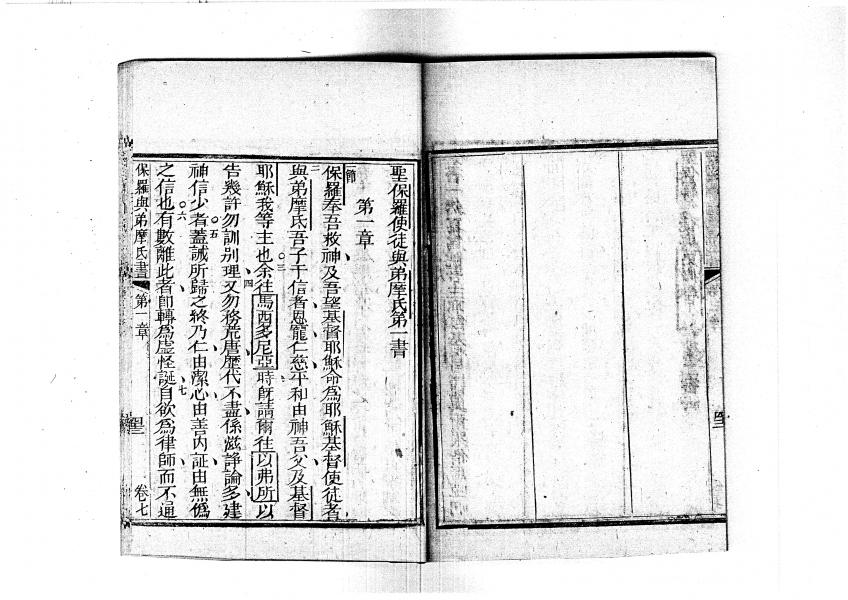 聖保羅使徒與弟摩氏第一書
第一章
一節
保羅奉吾救神及吾望基督耶穌命為耶穌基督使徒者
二
與弟摩氏吾子于信者恩寵仁慈平和由神吾父及基督
三
耶穌我等主也余往馬西多尼亞時既請爾往以弗所以
四
告幾許勿訓別理又勿務荒唐歷代不盡係滋諍論多建
五
神信少者蓋誡所歸之終乃仁由潔心由善內証由無偽
六 七
之信也有數離此者卽轉為虛怪誕自欲為律師而不通
保羅與弟摩氏書 第一章 卷七